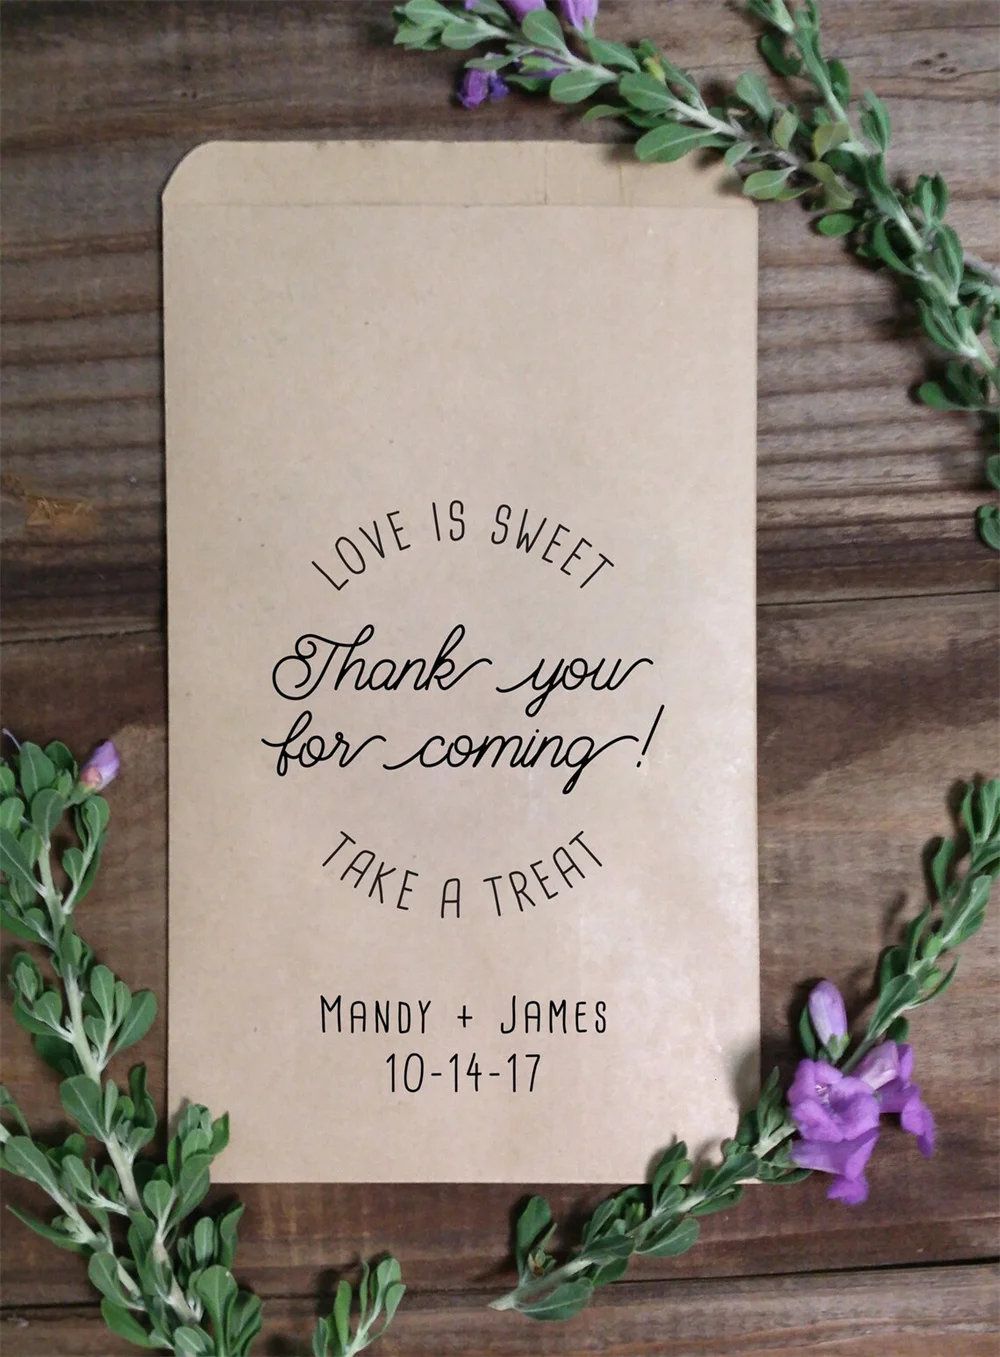 LOVE IS SWEET
Thank you
for coming!
TAKE A TREAT
MANDY + JAMES
10-14-17